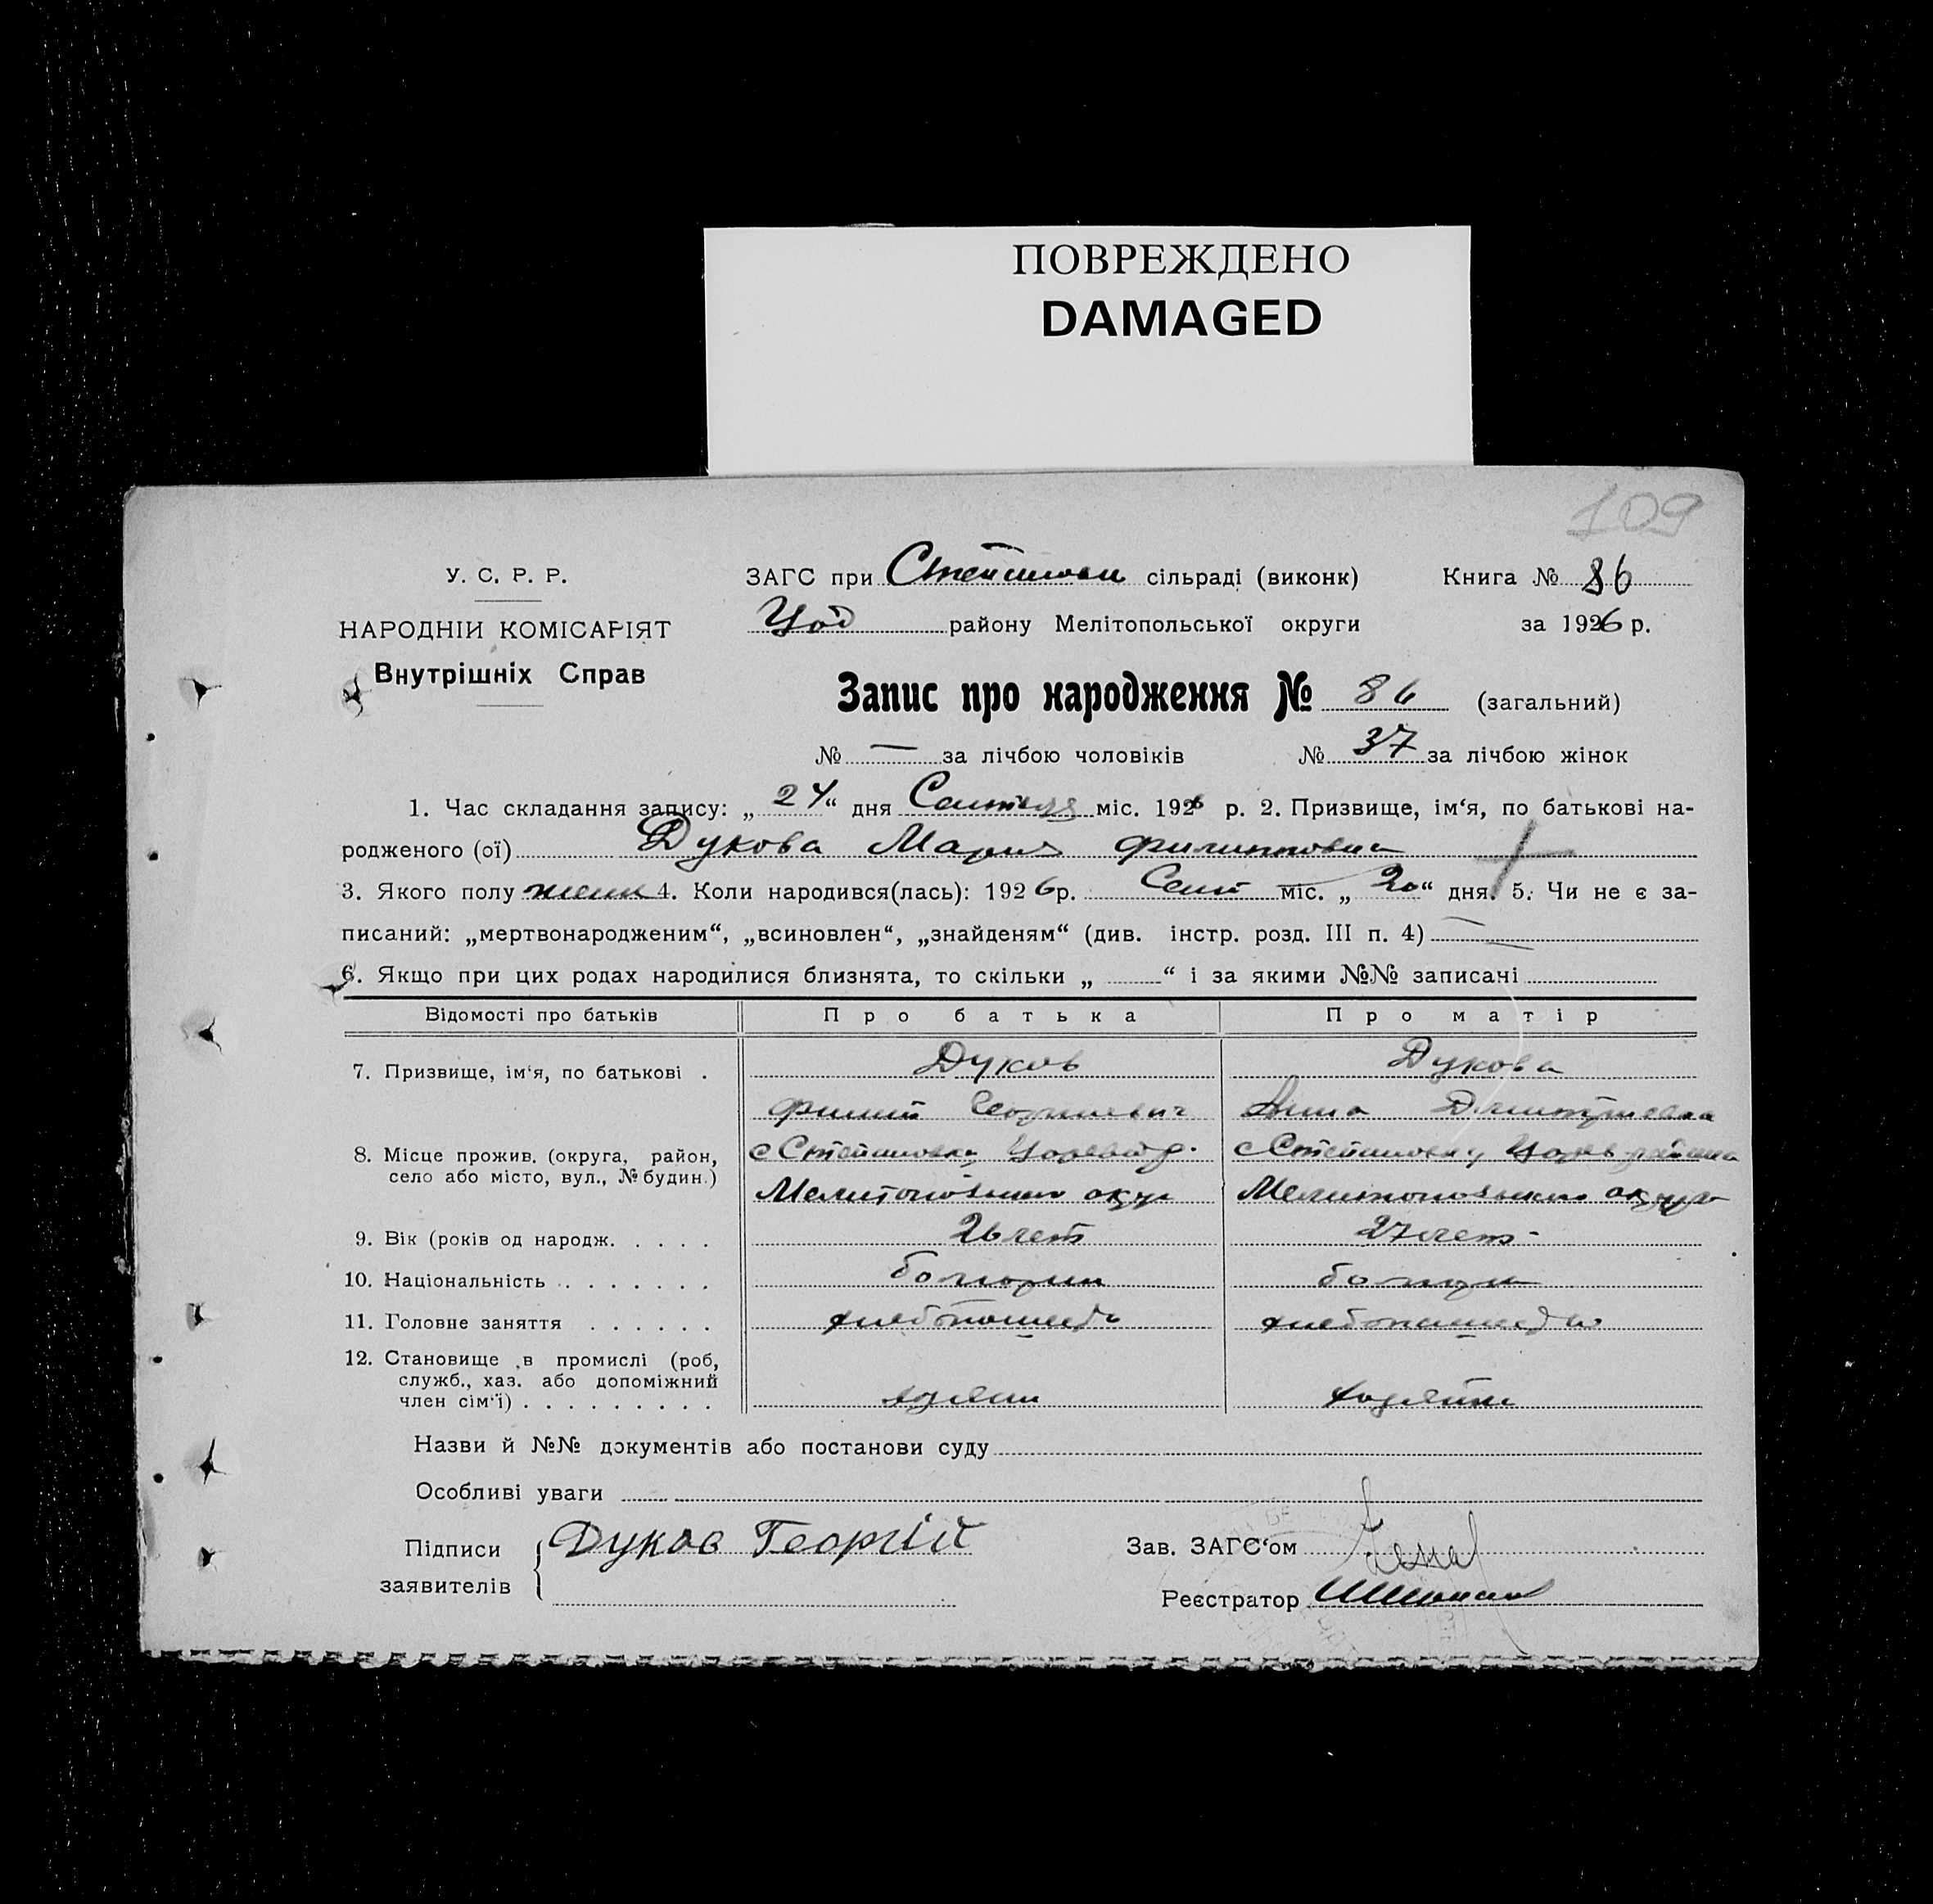 ПОВРЕЖДЕНО
DAMAGED
109
У. С. Р. Р.
НАРОДНІЙ КОМІСАРІЯТ
Внутрішніх Справ
ЗАГС при сільраді (виконк) Книга № 86
району Мелітопольської округи за 1926 р.
Запис про народження № 86 (загальний)
№ — за лічбою чоловіків № 37 за лічбою жінок
1. Час складання запису: „ 24 “ дня міс. 1926 р. 2. Призвище, ім‘я, по батькові на-
родженого (ої) Дукова Мария Филипповна
3. Якого полу женск 4. Коли народився(лась): 1926 р. Сент міс. „ 20 “ дня. 5. Чи не є за-
писаний: „мертвонародженим“, „всиновлен“, „знайденям“ (див. інстр. розд. III п. 4) —
6. Якщо при цих родах народилися близнята, то скільки „ “ і за якими №№ записані
Відомості про батьків Про батька Про матір
7. Призвище, ім‘я, по батькові . Дуков Дукова
Филип Георгиевич Анна Дмитриевна
8. Місце прожив. (округа, район,
село або місто, вул., № будин.)
с Степановка с Степановка
Мелитопольского округ Мелитопольского округа
9. Вік (років од народж. . . . . 26 лет 27 лет
10. Національність . . . . . . . болгарин
11. Головне заняття . . . . . . хлебопашество хлебопашество
12. Становище в промислі (роб,
служб., хаз. або допоміжний
член сім‘ї) . . . . . . . . .
Назви й №№ документів або постанови суду
Особливі уваги
Підписи
заявителів
Дуков Георгій
Зав. ЗАГС‘ом
Реєстратор